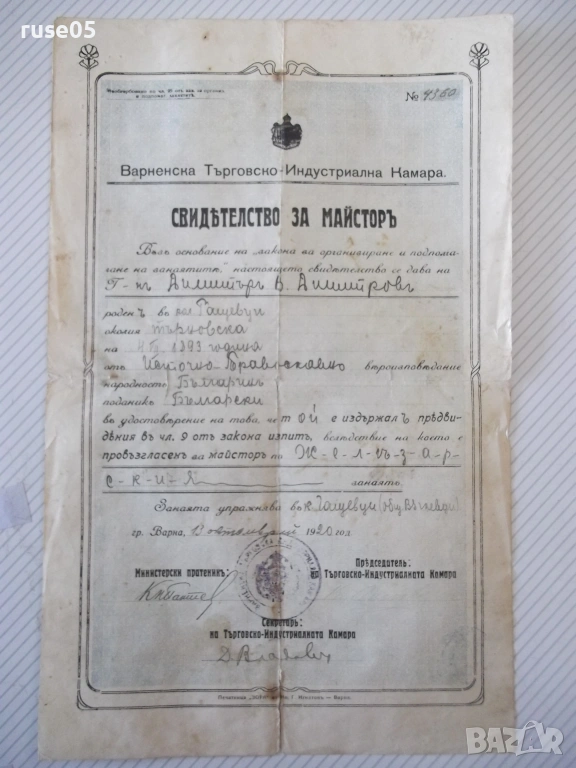 ruse05
№ 4560
Варненска Търговско-Индустриална Камара.
СВИДѢТЕЛСТВО ЗА МАЙСТОРЪ
Възъ основание на „закона за организиране и подпома-
гане на занаятитѣ“ настоящето свидетелство се дава на
Г-нъ Димитъръ В. Димитровъ
роденъ въ
околия Търновска
на 1893 година
отъ Источно-Православно вѣроизповѣдание
народность Българинъ
поданикъ Български
въ удостовѣрение на това, че той е издържалъ прѣдви-
дѣния въ чл. 9 отъ закона изпитъ, вслѣдствие на което е
провъзгласенъ за майсторъ по Ж-е-л-ѣ-з-а-р-
с-к-и-я занаятъ.
Занаята упражнява въ
гр. Варна, 13 октомврий 1920 год.
Министерски пратеникъ:
Прѣдседатель:
на Търговско-Индустриалната Камара
Секретарь:
на Търговско-Индустриалната Камара
BAZAR